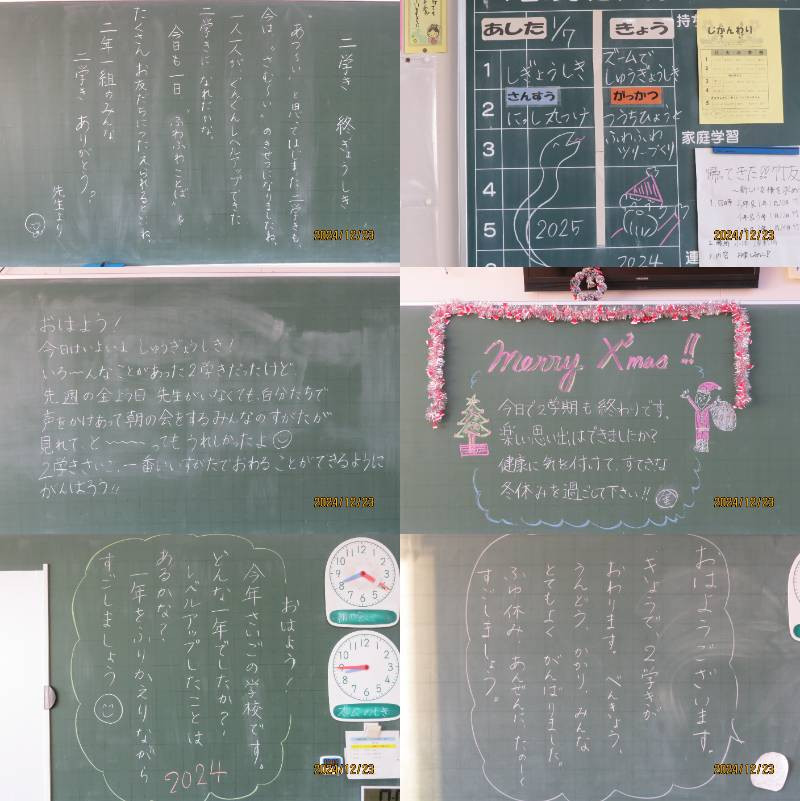 二学き 終ぎょうしき
"あつ〜い"と思ってはじまった二学きも、
今は、"さむ〜い"のきせつになりましたね。
一人一人が、ぐんぐんレベルアップできた
二学きに なれたかな。
今日も一日 ふわふわことば を
たくさんお友だちにつたえられるといいね。
二年一組のみんな
二学き ありがとう。
先生より
2024/12/23
あした 1/7
きょう
持ち
じかんわり
1
しぎょうしき
ズームで
しゅうぎょうしき
2
さんすう
にっし 丸つけ
がっかつ
つうちひょうと
3
ふわふわ
ツリーづくり
家庭学習
4
5
2025
2024
連
帰ってきた
2024/12/23
おはよう!
今日はいよいよ しゅうぎょうしき!
いろ〜んなことがあった2学きだったけど
先週の金よう日 先生がいなくても、自分たちで
声をかけあって朝の会をするみんなのすがたが
見れて と〜〜〜ってもうれしかったよ
2学きさいご、一番いいすがたでおわることができるように
がんばろう!!
2024/12/23
Merry X'mas!!
今日で2学期も終わりです。
楽しい思い出はできましたか?
健康に気を付けて、すてきな
冬休みを過ごして下さい!!
2024/12/23
おはよう!
今年さいごの学校です。
どんな一年でしたか?
レベルアップしたことは
あるかな?
一年をふりかえりながら
すごしましょう
2024
2024/12/23
おはようございます。
きょうで、2学きが
おわります。べんきょう、
うんどう、かかり、みんな
とてもよく がんばりました。
ふゆ休み あんぜんに、たのし〜
すごしましょう。
2024/12/23